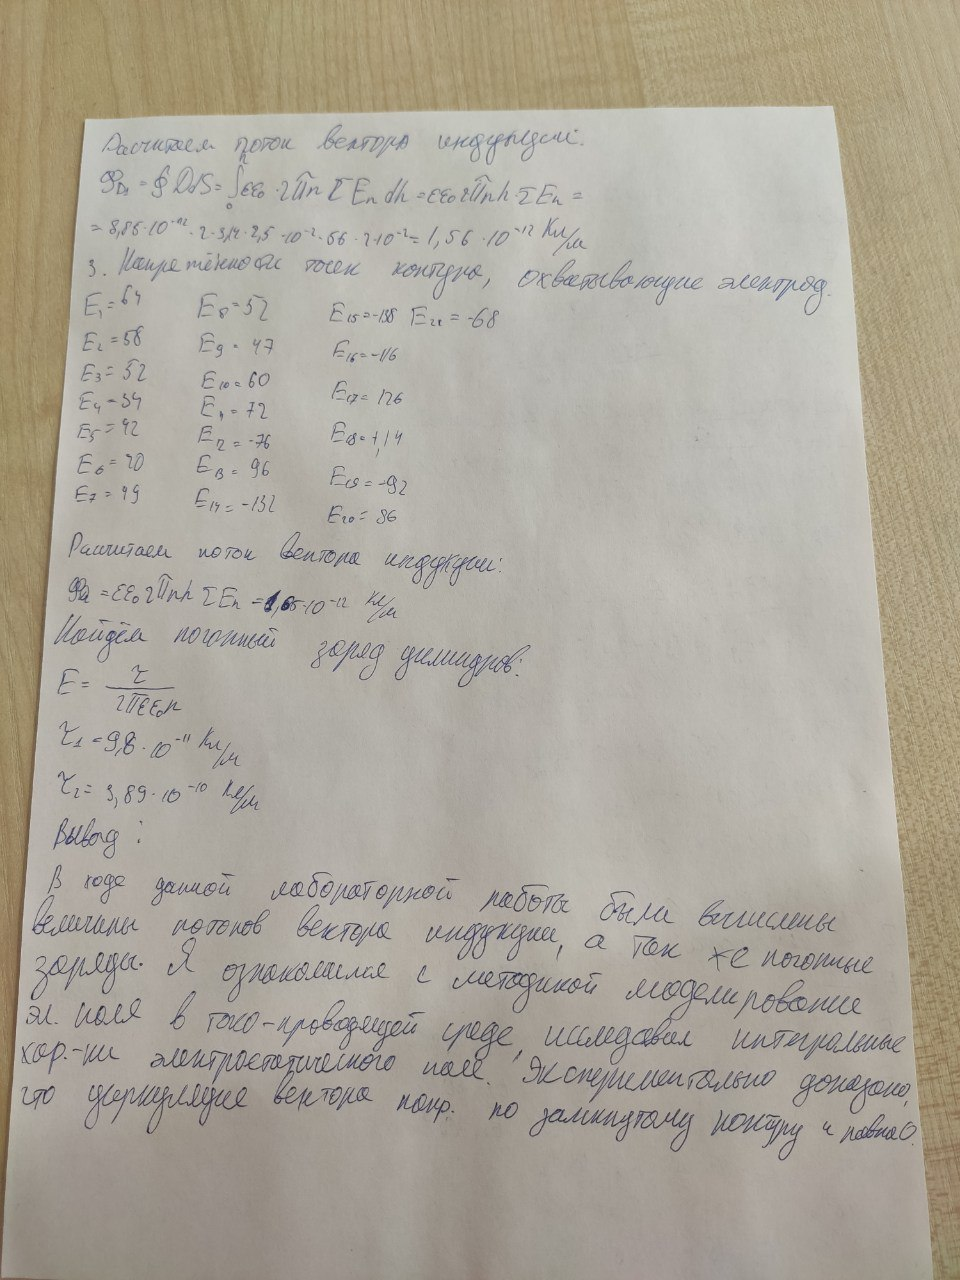 Расчитаем поток вектора индукции:
Φ_D1 = ∮ DdS = ∫₀ʰ εε₀ · 2πr Σ Eₙ dh = εε₀ 2πrh · ΣEₙ =
= 8,85·10⁻¹² · 2 · 3,14 · 2,5 · 10⁻² · 56 · 2·10⁻² = 1,56 · 10⁻¹² Кл/м
3. Напряжённости точек контура, охватывающие электрод.
E₁ = 64 E₈ = 52 E₁₅ = -138 E₂₁ = -68
E₂ = 58 E₉ = 47 E₁₆ = -116
E₃ = 52 E₁₀ = 60 E₁₇ = 126
E₄ = 54 E₁₁ = 72 E₁₈ = 114
E₅ = 42 E₁₂ = -76 E₁₉ = -92
E₆ = 40 E₁₃ = 96 E₂₀ = 86
E₇ = 49 E₁₄ = -132
Расчитаем поток вектора индукции:
Φ = εε₀ 2πrh ΣEₙ = 1,65·10⁻¹² Кл/м
Найдём погонный заряд цилиндров:
E = τ / 2πεε₀r
τ₁ = 9,8 · 10⁻¹¹ Кл/м
τ₂ = 3,89 · 10⁻¹⁰ Кл/м
Вывод:
В ходе данной лабораторной работы были вычислены
величины потоков вектора индукции, а так же погонные
заряды. Я ознакомился с методикой моделирование
эл. поля в токо-проводящей среде, исследовал интегральные
хар.-ки электростатического поля. Экспериментально доказано,
что циркуляция вектора напр. по замкнутому контуру равна 0.